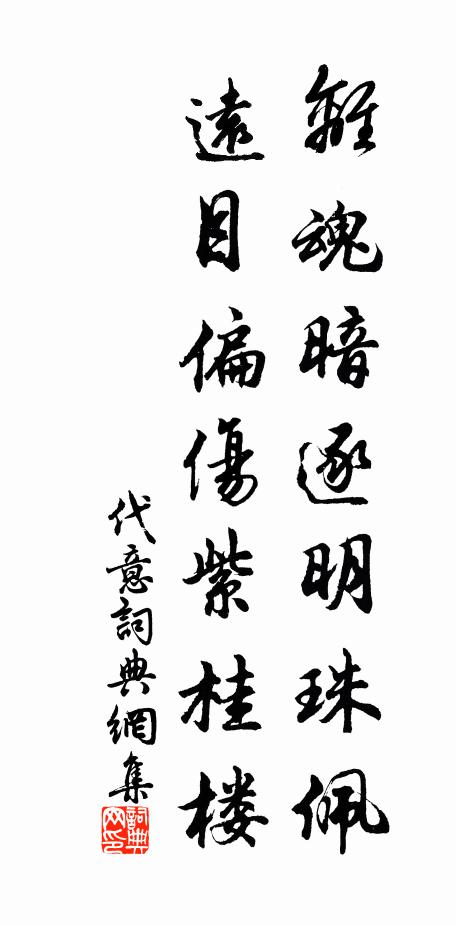 離魂暗逐明珠佩
遠目偏傷紫桂楼
代意詞典網集
詞典网印